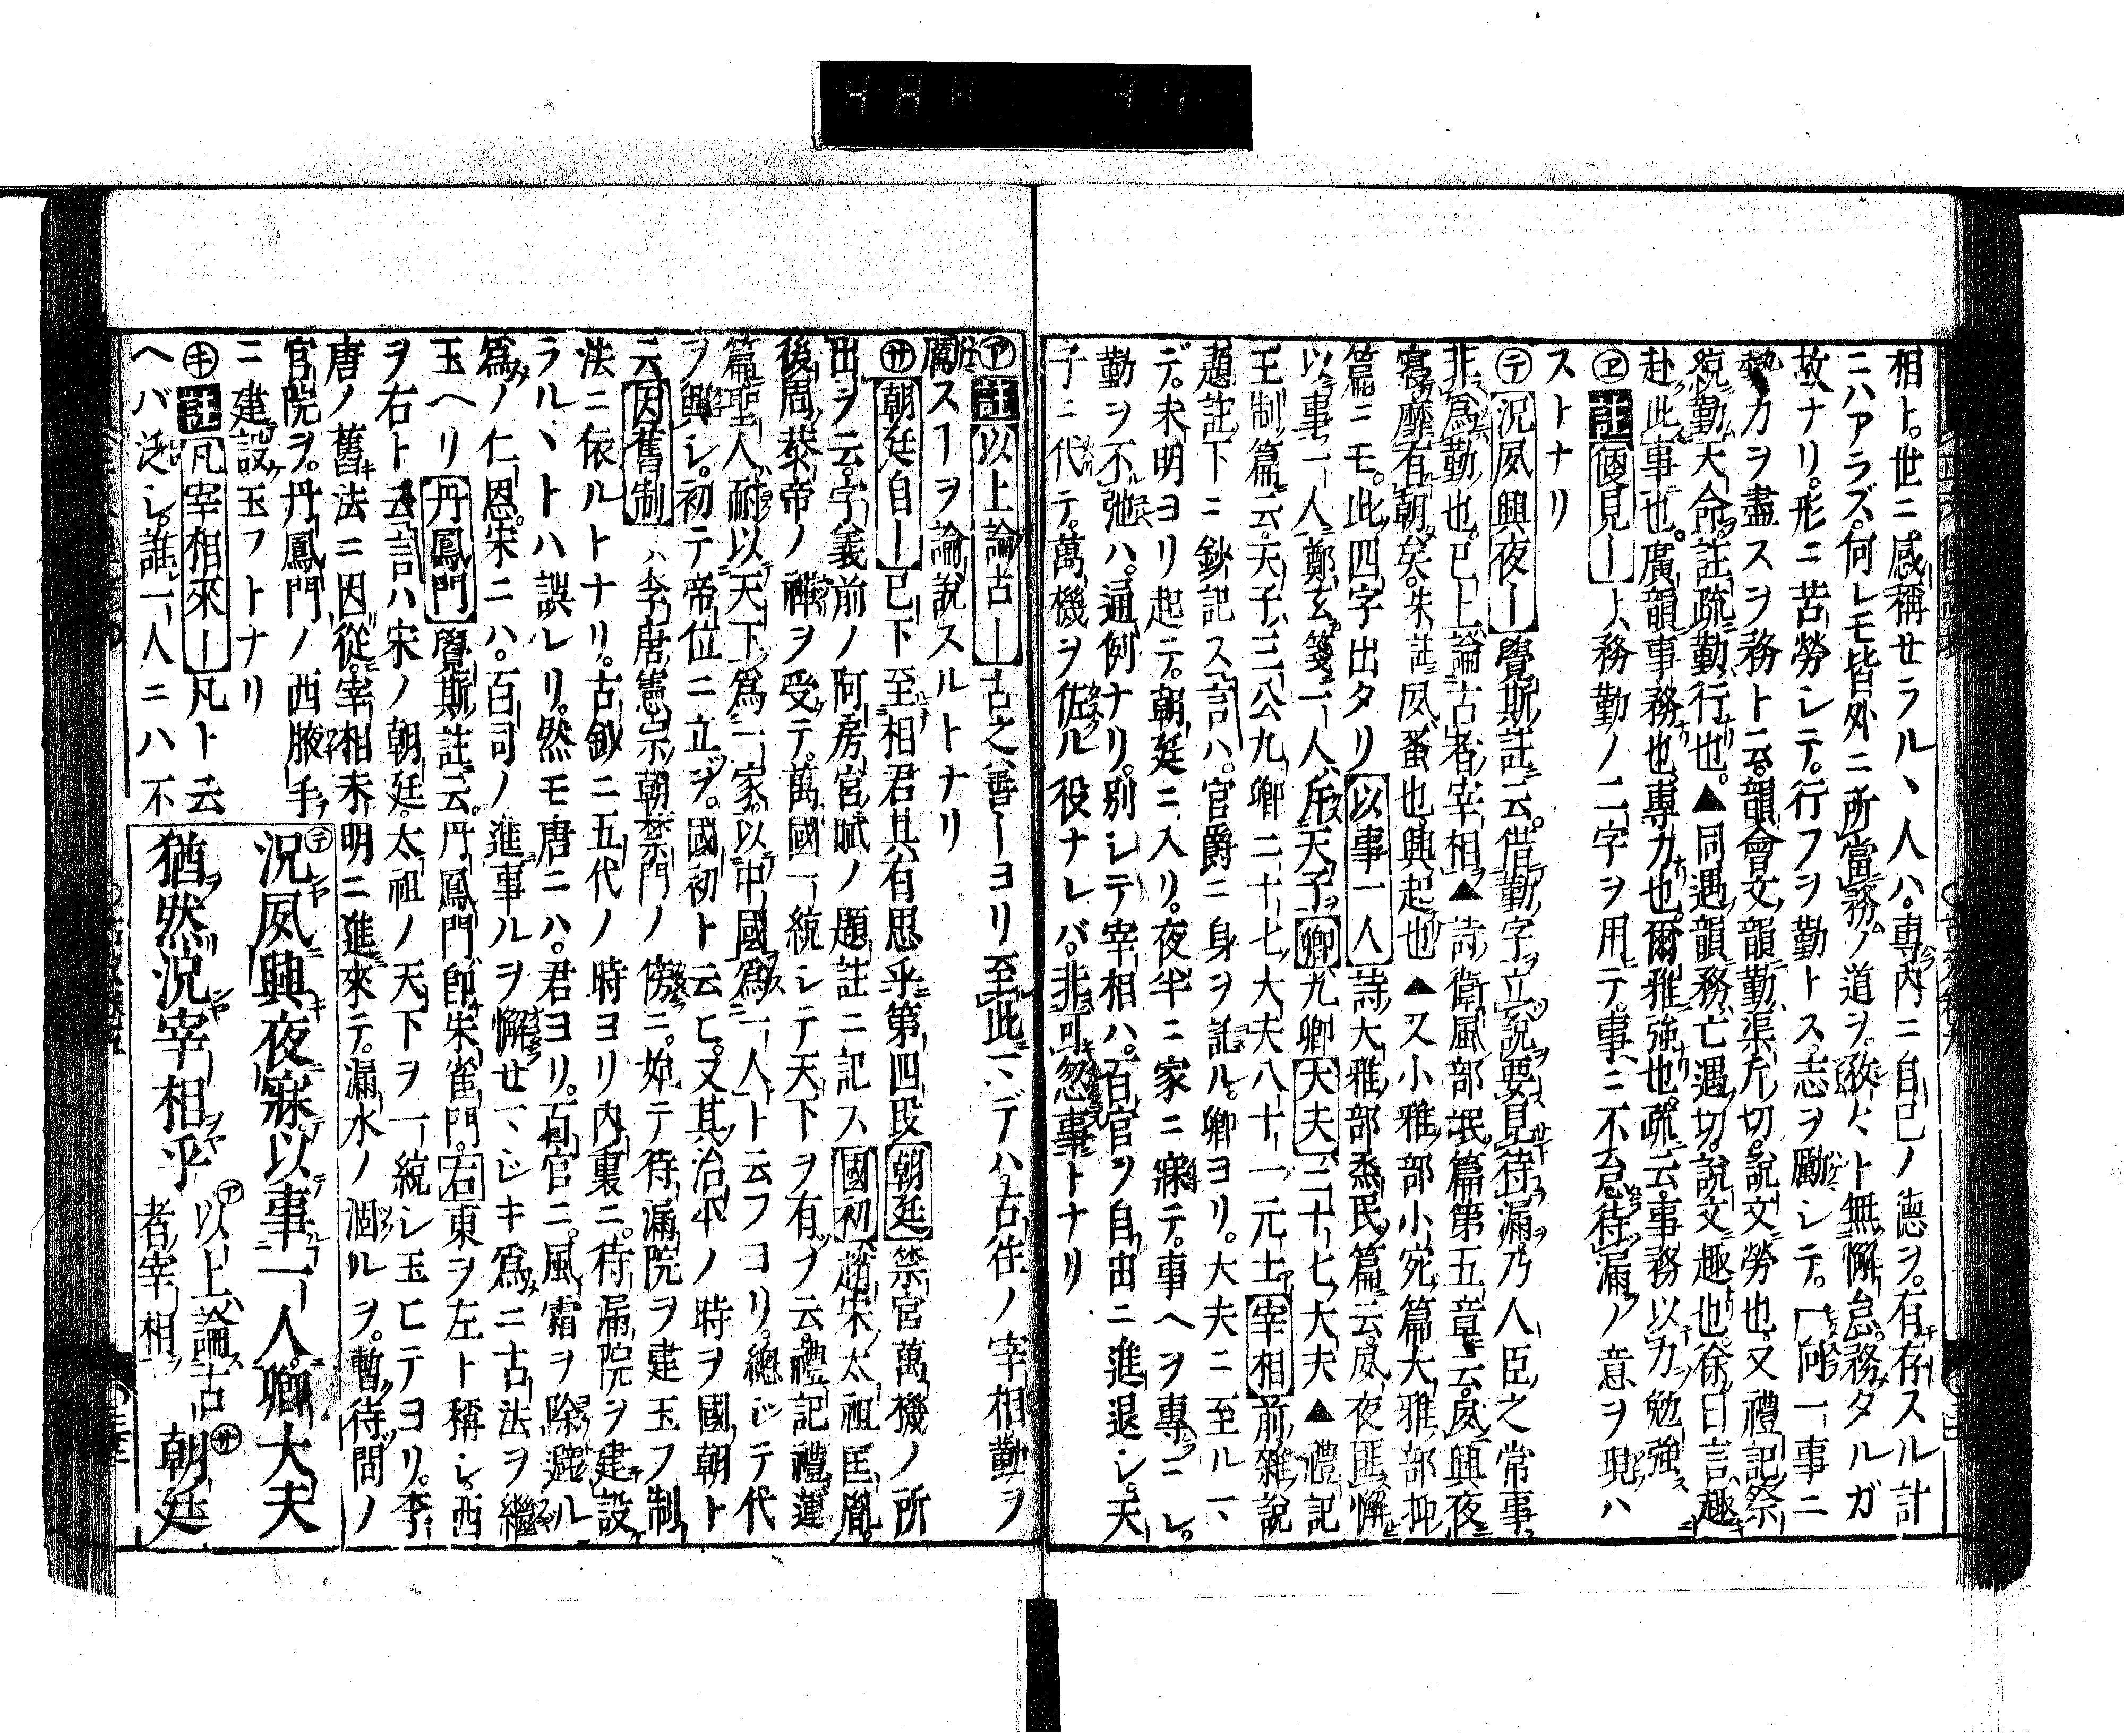 相ト。世ニ感稱せラル、人ハ。專内ニ自己ノ德ヲ。有存スル計
ニハアラズ。何レモ皆外ニ所當務ノ道ヲ。敢ト無懈怠務タルガ
故ナリ。形ニ苦勞シテ。行フヲ勤トス志ヲ勵シテ。一向一事ニ
力ヲ盡スヲ務ト云。韻會文韻勤渠斤切。說文勞也。又禮記祭
統勤天命。註疏勤行也。▲同遇韻務亡遇切。說文趣也徐曰言趣
赴此事也。廣韻事務也專力也。爾雅強也。疏云事務以力勉強
ヱ 註 便見ー ト務勤ノ二字ヲ用テ。事ニ不怠待漏ノ意ヲ現ハ
ストナリ
テ 況夙興夜ー 覺斯註云。借勤字立說要見待漏乃人臣之常事
非爲勤也。已上論古者宰相▲詩衛風部氓篇第五章云。夙興夜
寐靡有朝矣。朱註夙蚤也興起也▲又小雅部小宛篇大雅部抑
篇ニモ。此四字出タリ 以事一人 詩大雅部烝民篇云。夙夜匪懈
以事一人鄭玄箋一人斥天子。 卿 九卿 大夫 二十七大夫▲禮記
王制篇云。天子三公九卿二十七大夫八十一元士 宰相 前雜說
題註下ニ鈔記ス言ハ。官爵ニ身ヲ託ル。卿ヨリ。大夫ニ至ルマ
デ。未明ヨリ起テ。朝廷ニ入リ。夜半ニ家ニ寐テ。事ヘヲ專ニシ。
勤ヲ不弛ハ。通例ナリ。別シテ宰相ハ。百官ヲ自由ニ進退シ。天
子ニ代テ。萬機ヲ佐ル役ナレバ。非可忽事トナリ
ア 註 以上論古ー 古之善ーヨリ至此マデハ古往ノ宰相勤ヲ
勵スヿヲ論說スルトナリ
サ 朝廷自ー 已下至相君其有思乎第四段 朝廷 禁宮萬機ノ所
出ヲ云。字義前ノ阿房宮賦ノ題註ニ記ス 國初 趙宋太祖匡胤。
後周恭帝ノ禪ヲ受テ。萬國一統シテ天下ヲ有ヲ云。禮記禮運
篇聖人耐以天下爲一家。以中國爲一人ト云フコリ。總ジテ代
ヲ興シ。初テ帝位ニ立ヲ。國初ト云ヒ。又其治平ノ時ヲ國朝ト
云 因舊制 ハ李唐憲宗朝禁門ノ傍ニ。始テ待漏院ヲ建玉フ制
法ニ依ルトナリ。古鈔ニ五代ノ時ヨリ内裏ニ。待漏院ヲ建設
ラル、トハ誤レリ。然モ唐ニハ。君ヨリ。百官ニ。風霜ヲ除避ル
爲ノ仁恩。宋ニハ。百司ノ進事ルヲ懈せマジキ爲ニ古法ヲ繼
玉ヘリ 丹鳳門 覺斯註云。丹鳳門卽朱雀門。 右 東ヲ左ト稱シ。西
ヲ右ト云言ハ宋ノ朝廷。太祖ノ天下ヲ一統シ玉ヒテヨリ。李
唐ノ舊法ニ因從。宰相未明ニ進來テ。漏水ノ涸ルヲ。暫待間ノ
官院ヲ。丹鳳門ノ西腋手
ニ建設玉フトナリ
キ 註 凡宰相來ー 凡ト云
ヘバ泛シ。誰一人ニハ不
況夙興夜寐以事一人。卿大夫
猶然況宰相乎 以上論古者宰相 朝廷